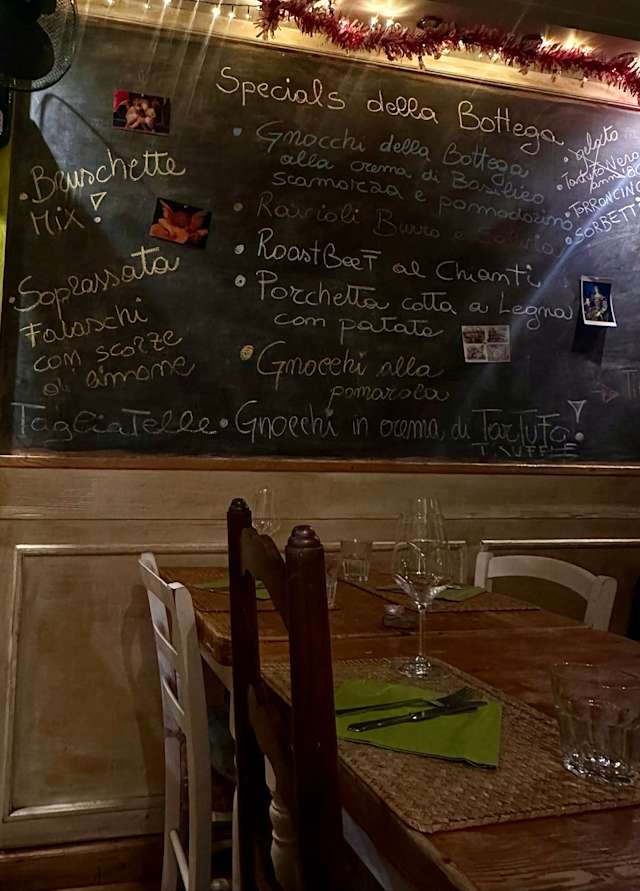 Specials della Bottega
• Gnocchi della Bottega
alla crema di Basilico
scamorza e pomodorino
• Ravioli Burro e Salvia
• RoastBeeF al Chianti
• Porchetta cotta a Legna
con patate
• Gnocchi alla
pomarola
TagliaTelle • Gnocchi in crema di TarTuFo!
TRUFFLE
• Bruschette
Mix!
• Soprassata
Falaschi
con scorze
di limone
• gelato
• TarTufo Nero
• TORRONCINO
• SORBETTI